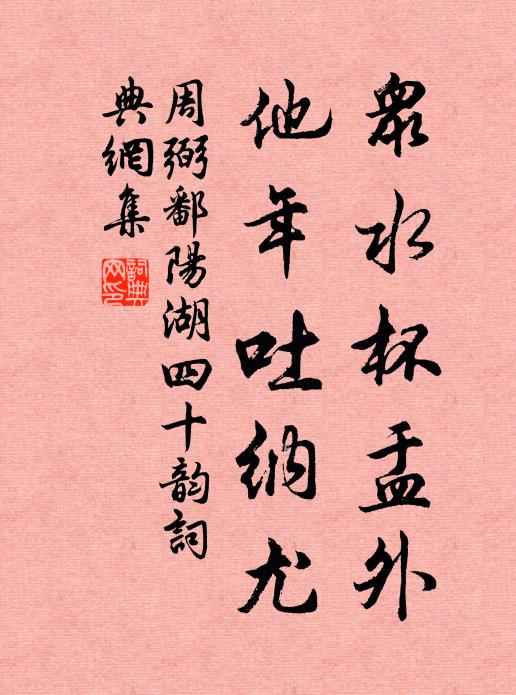 衆水杯盂外
他年吐纳尤
周弼鄱陽湖四十韵詞
典網集
詞典
网印